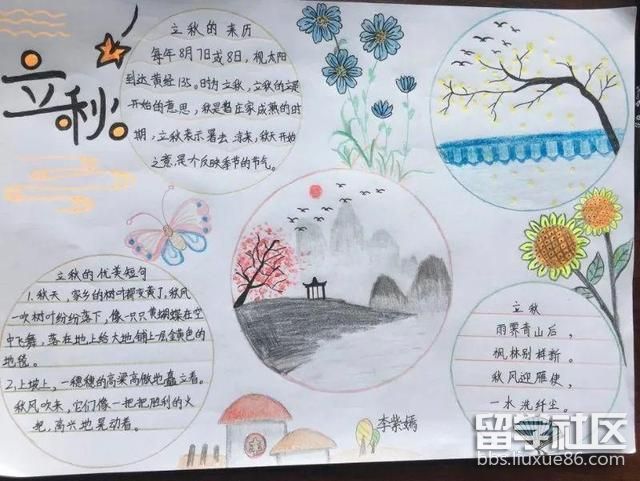 立秋
立秋的来历
每年8月7日或8日,视太阳
到达黄经135。时为立秋,立秋的立是
开始的意思,秋是指庄家成熟的时
期,立秋表示暑去凉来,秋天开始
之意,是个反映季节的节气。
立秋的优美短句
1.秋天,家乡的树叶都变黄了,秋风
一吹树叶纷纷落下,像一只只黄蝴蝶在空
中飞舞,落在地上给大地铺上一层金黄色的
地毯。
2.土坡上,一穗穗的高梁高傲地矗立着。
秋风吹来,它们像一把把胜利的火
把,高兴地晃动着。
立秋
雨霁青山后,
枫林别样新。
秋风迎雁使,
一水洗纤尘。
李紫嫣
留学社区
bbs.liuxue86.com